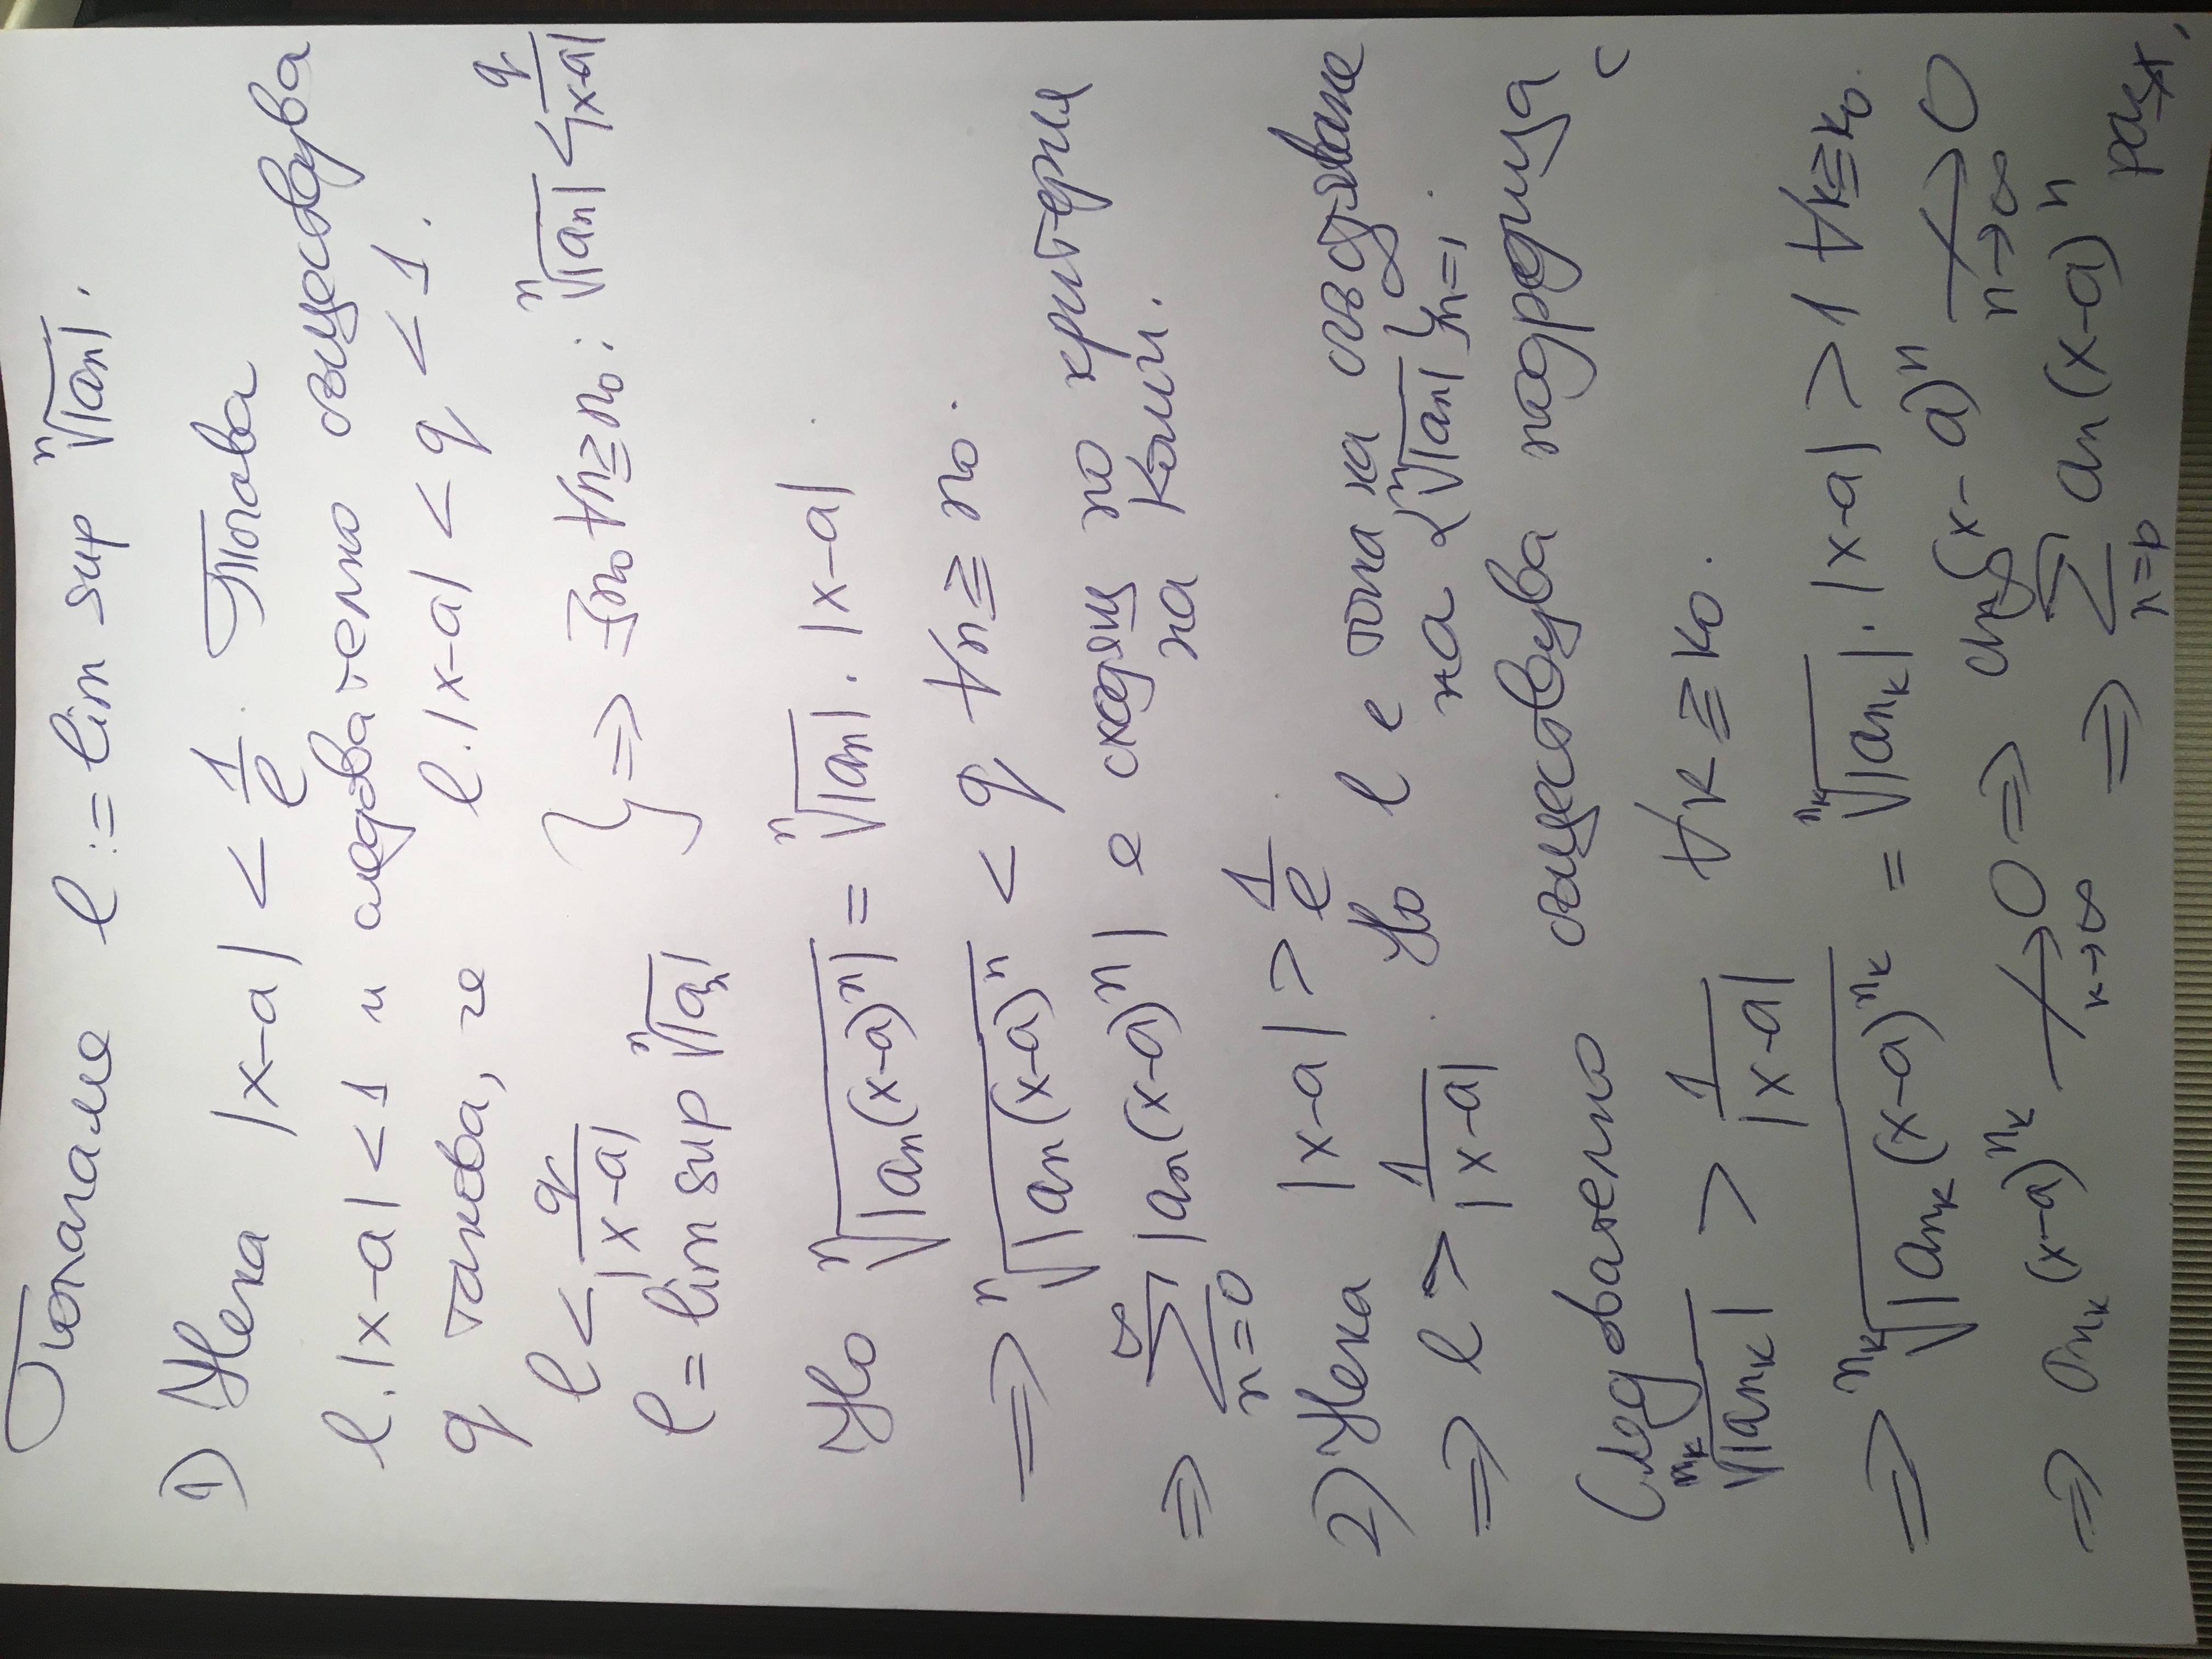 Полагаме l := lim sup ⁿ√|aₙ|.
1) Нека |x-a| < 1/l. Тогава
l.|x-a| < 1 и следователно съществува
q такова, че l.|x-a| < q < 1.
l < q/|x-a|
l = lim sup ⁿ√|aₙ| } ⇒ ∃n₀ ∀n ≧ n₀ : ⁿ√|aₙ| < q/|x-a|
Но ⁿ√|aₙ(x-a)ⁿ| = ⁿ√|aₙ| . |x-a|
⇒ ⁿ√|aₙ(x-a)ⁿ < q ∀n ≧ n₀.
⇒ ∑_{n=0}^∞ |aₙ(x-a)ⁿ| е сходящ по критерия
на Коши.
2) Нека |x-a| > 1/l.
⇒ l > 1/|x-a|. Но l е точка на сгъстяване
на {ⁿ√|aₙ|}_{n=1}^∞.
Следователно съществува подредица
с
ⁿᵏ√|a_{n_k}| > 1/|x-a| ∀k ≧ k₀.
⇒ ⁿᵏ√|a_{n_k}(x-a)^{n_k} = ⁿᵏ√|a_{n_k}| . |x-a| > 1 ∀k ≧ k₀.
⇒ a_{n_k}(x-a)^{n_k} ↛_{k→∞} 0 ⇒ aₙ(x-a)ⁿ ↛_{n→∞} 0
⇒ ∑_{n=0}^∞ aₙ(x-a)ⁿ разх.